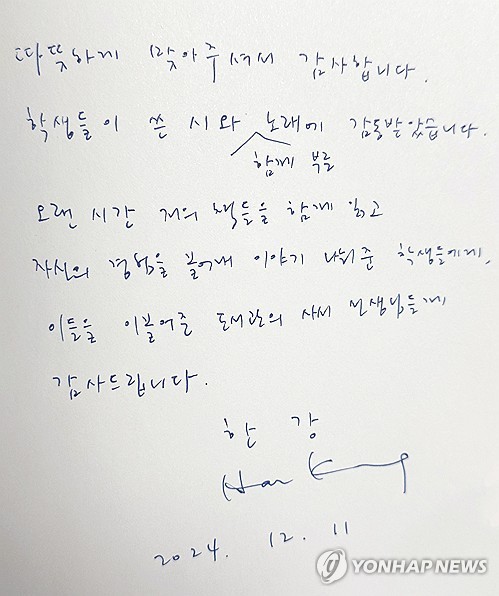 따뜻하게 맞아주셔서 감사합니다.
학생들이 쓴 시와 노래에 감동받았습니다.
함께 부른
오랜 시간 저의 책들을 함께 읽고
자신의 경험을 불어내 이야기 나눠준 학생들에게,
이들을 이끌어준 도서관의 사서 선생님들께
감사드립니다.
한 강
Han Kang
2024. 12. 11
YONHAP NEWS